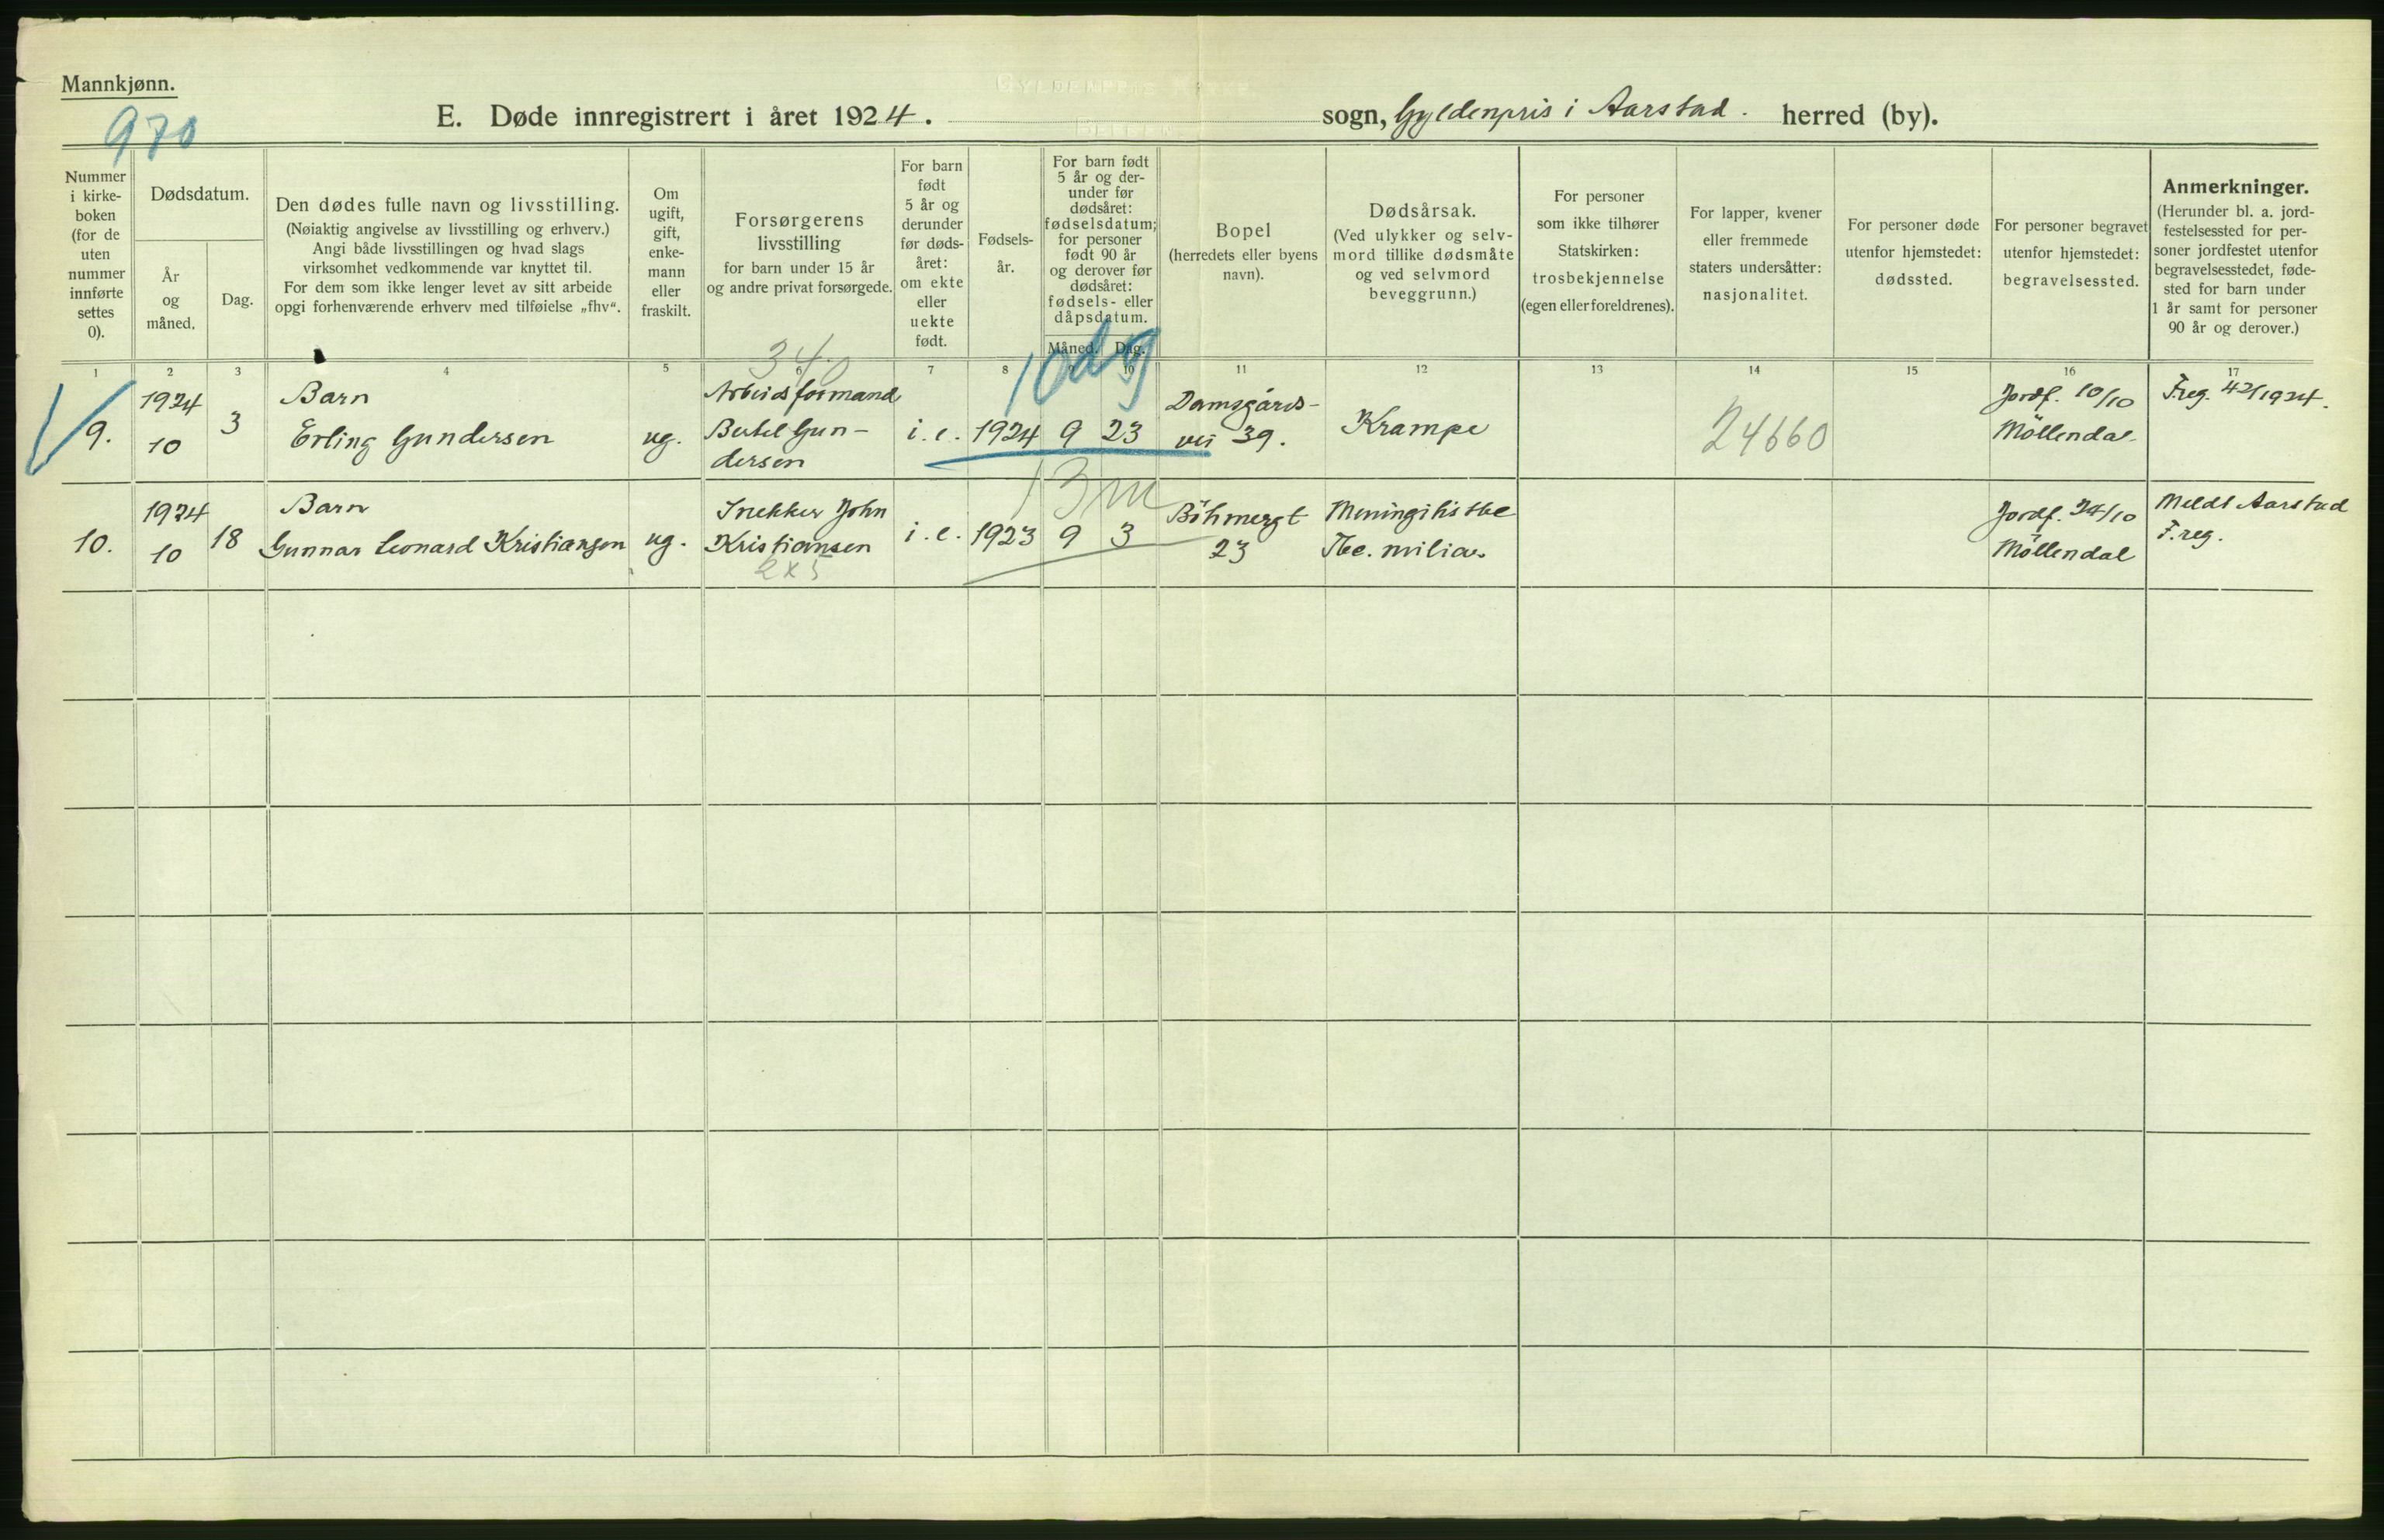 Mannkjønn.
970
GYLDENPRIS KIRKE
BERGEN
E. Døde innregistrert i året 1924. sogn, Gyldenpris i Aarstad. herred (by).
Nummer
i kirke-
boken
(for de
uten
nummer
innførte
settes
0).
Dødsdatum.
År
og
måned.
Dag.
Den dødes fulle navn og livsstilling.
(Nøiaktig angivelse av livsstilling og erhverv.)
Angi både livsstillingen og hvad slags
virksomhet vedkommende var knyttet til.
For dem som ikke lenger levet av sitt arbeide
opgi forhenværende erhverv med tilføielse „fhv“.
Om
ugift,
gift,
enke-
mann
eller
fraskilt.
Forsørgerens
livsstilling
for barn under 15 år
og andre privat forsørgede.
For barn
født
5 år og
derunder
før døds-
året:
om ekte
eller
uekte
født.
Fødsels-
år.
For barn født
5 år og der-
under før
dødsåret:
fødselsdatum;
for personer
født 90 år
og derover før
dødsåret:
fødsels- eller
dåpsdatum.
Måned. Dag.
Bopel
(herredets eller byens
navn).
Dødsårsak.
(Ved ulykker og selv-
mord tillike dødsmåte
og ved selvmord
beveggrunn.)
For personer
som ikke tilhører
Statskirken:
trosbekjennelse
(egen eller foreldrenes).
For lapper, kvener
eller fremmede
staters undersåtter:
nasjonalitet.
For personer døde
utenfor hjemstedet:
dødssted.
For personer begravet
utenfor hjemstedet:
begravelsessted.
Anmerkninger.
(Herunder bl. a. jord-
festelsessted for per-
soner jordfestet utenfor
begravelsesstedet, føde-
sted for barn under
1 år samt for personer
90 år og derover.)
1 2 3 4 5 6 7 8 9 10 11 12 13 14 15 16 17
340
10dg
9.
1924
10
3
Barn
Erling Gundersen
ug.
Arbeidsformand
Bertel Gun-
dersen
i. e.
1924
9
23
Damsgårds-
vei 39.
Krampe
24660
Jordf. 10/10
Möllendal
F.reg. 42/1924.
13m
10.
1924
10
18
Barn
Gunnar Leonard Kristiansen
ug.
Snekker John
Kristiansen
2x5
i. e.
1923
9
3
Böhmergt
23
Meningitis tbc
Tbc. miliar.
Jordf. 24/10
Möllendal
Meldt Aarstad
F.reg.